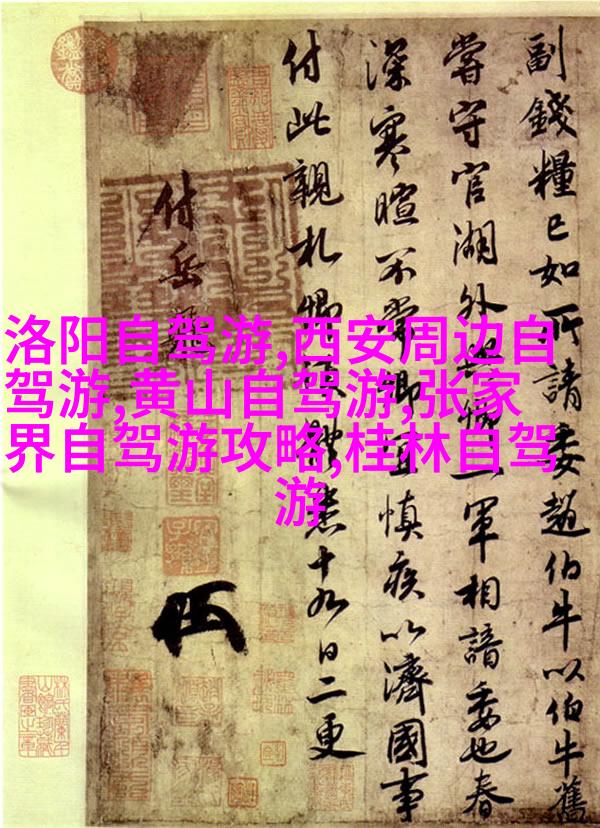 洛阳自驾游,西安周边自
驾游,黄山自驾游,张家
界自驾游攻略,桂林自驾
游
副錢糧已如所請委趙伯牛以伯牛舊
嘗守官湖外與卿一軍相諳委也春
深寒暄不常卿宜慎疾以濟國事
付此親札卿須體悉十九日二更
付岳飛